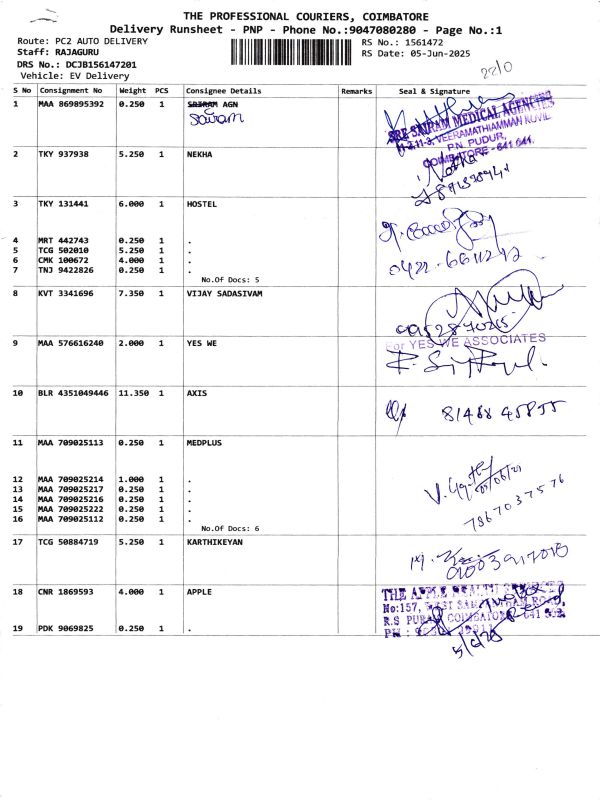 THE PROFESSIONAL COURIERS, COIMBATORE
Delivery Runsheet - PNP - Phone No.:9047080280 - Page No.:1
Route: PC2 AUTO DELIVERY
RS No.: 1561472
Staff: RAJAGURU
RS Date: 05-Jun-2025
DRS No.: DCJB156147201
Vehicle: EV Delivery
22/0
S No Consignment No Weight PCS Consignee Details Remarks Seal & Signature
1 MAA 869895392 0.250 1 SRIRAM AGN
Sairam
SRE SAIRAM MEDICAL AGENCIES
VEERAMATHIAMMAN KOVIL
P.N. PUDUR,
COIMBATORE - 641 041.
2 TKY 937938 5.250 1 NEKHA
3 TKY 131441 6.000 1 HOSTEL
4 MRT 442743 0.250 1 .
5 TCG 502010 5.250 1 .
6 CMK 100672 4.000 1 .
7 TNJ 9422826 0.250 1 .
No.Of Docs: 5
0422-6611242
8 KVT 3341696 7.350 1 VIJAY SADASIVAM
9952870215
9 MAA 576616240 2.000 1 YES WE
For YES WE ASSOCIATES
10 BLR 4351049446 11.350 1 AXIS
81488 45855
11 MAA 709025113 0.250 1 MEDPLUS
12 MAA 709025214 1.000 1 .
13 MAA 709025217 0.250 1 .
14 MAA 709025216 0.250 1 .
15 MAA 709025222 0.250 1 .
16 MAA 709025112 0.250 1 .
No.Of Docs: 6
7867037576
17 TCG 50884719 5.250 1 KARTHIKEYAN
18 CNR 1869593 4.000 1 APPLE
THE APPLE
No:157,
R.S PURAM COIMBATORE 641 002.
PH :
19 PDK 9069825 0.250 1 .
5/6/25